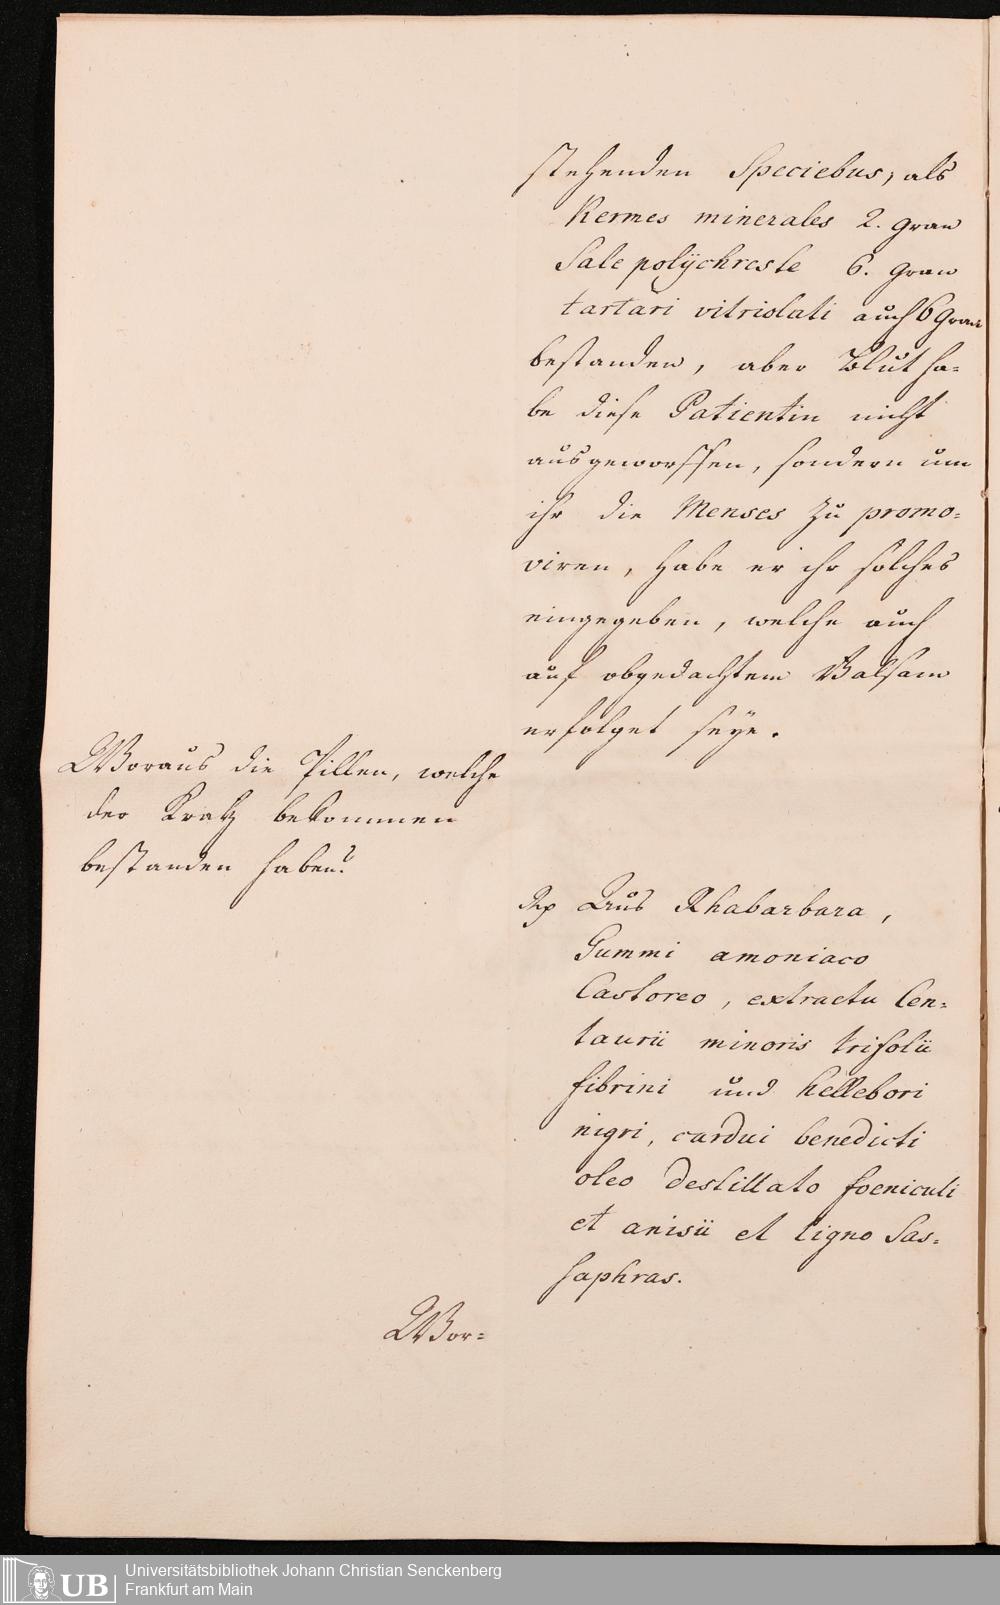 stehenden Speciebus, als
Kermes minerales 2. gran
Sale polÿchreste 6. gran
tartari vitriolati auch 6 gran
bestanden, aber Blut ha=
be diese Patientin nicht
ausgeworffen, sondern um
ihr die Menses zu promo=
viren, habe er ihr solches
eingegeben, welche auch
auf obgedachtem Balsam
erfolget seÿe.
Woraus die Pillen, welche
der Kratz bekommen
bestanden haben?
Rp Aus Rhabarbara,
Gummi amoniaco
Castoreo, extractu Cen=
taurii minoris trifolii
fibrini und hellebori
nigri, cardui benedicti
oleo destillato foeniculi
et anisii et ligno Sas=
saphras.
Wor=
Universitätsbibliothek Johann Christian Senckenberg
Frankfurt am Main
UB